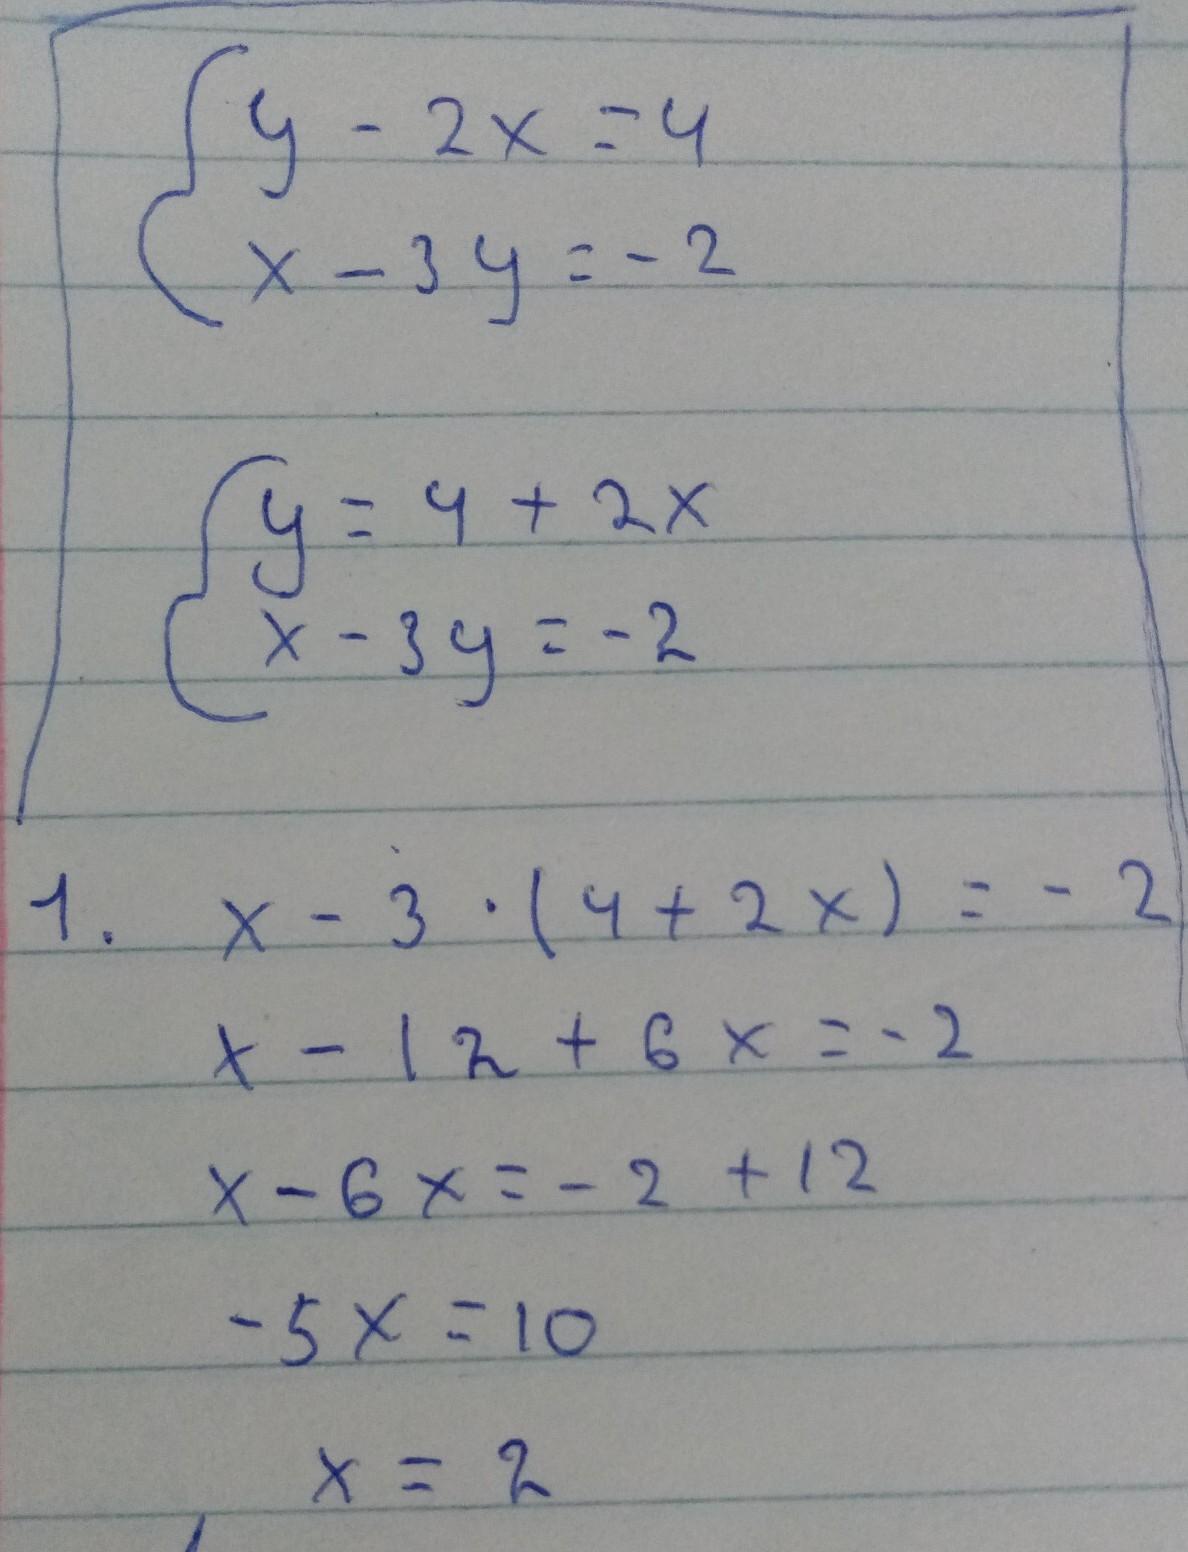 y - 2x = 4
x - 3y = -2
y = 4 + 2x
x - 3y = -2
1. x - 3 · (4 + 2x) = -2
x - 12 + 6x = -2
x - 6x = -2 + 12
-5x = 10
x = 2